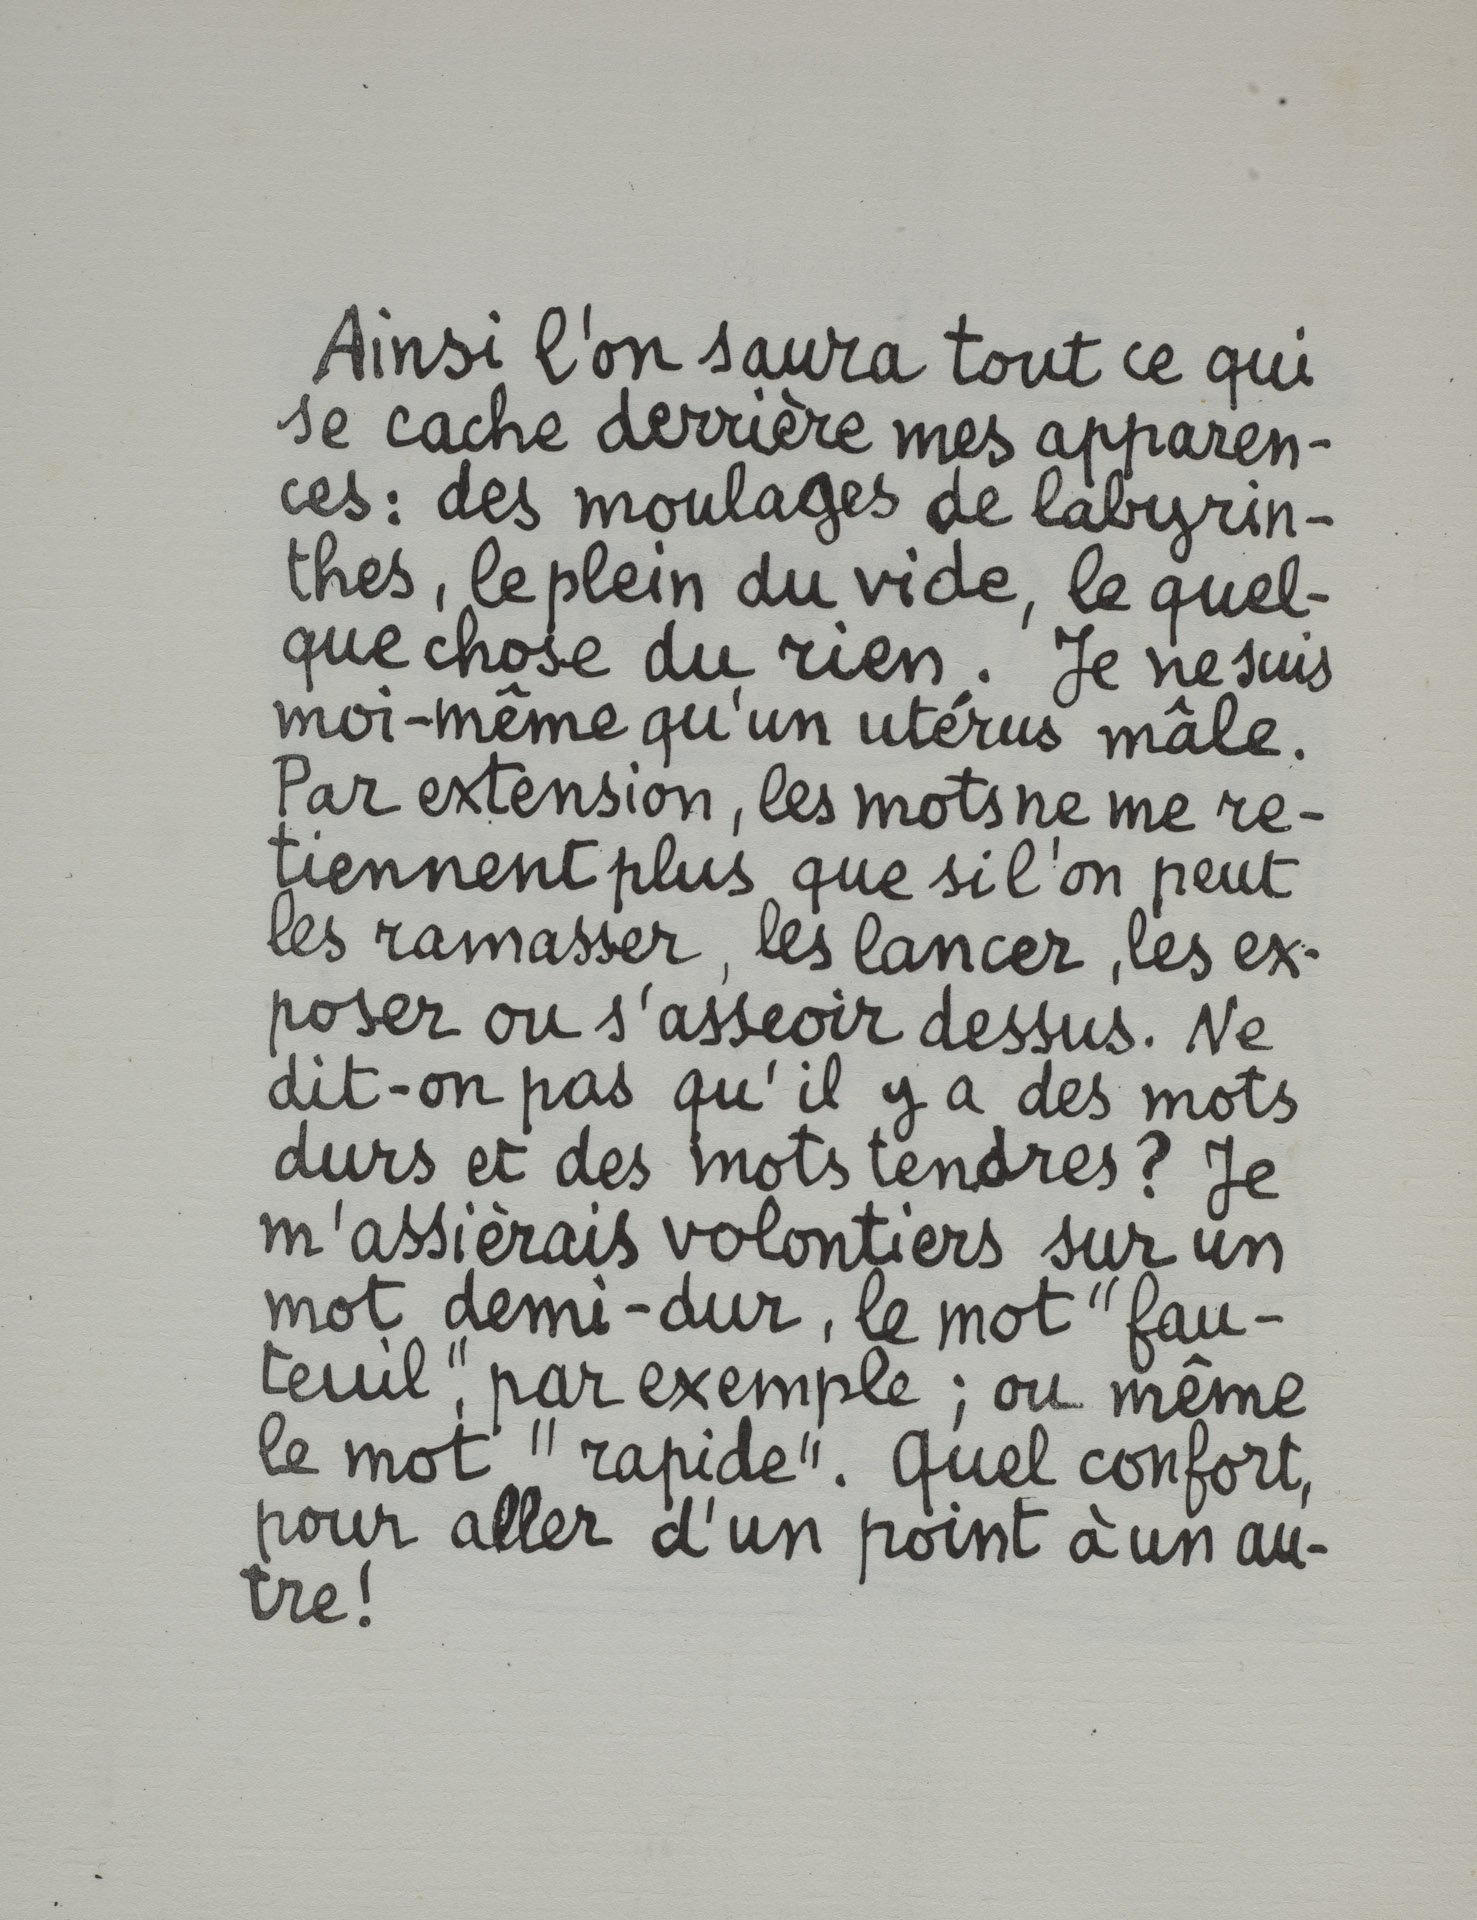 Ainsi l'on saura tout ce qui
se cache derrière mes apparen-
ces : des moulages de labyrin-
thes, le plein du vide, le quel-
que chose du rien. Je ne suis
moi-même qu'un utérus mâle.
Par extension, les mots ne me re-
tiennent plus que si l'on peut
les ramasser, les lancer, les ex-
poser ou s'asseoir dessus. Ne
dit-on pas qu'il y a des mots
durs et des mots tendres ? Je
m'assièrais volontiers sur un
mot demi-dur, le mot "fau-
teuil", par exemple ; ou même
le mot "rapide". Quel confort,
pour aller d'un point à un au-
tre !